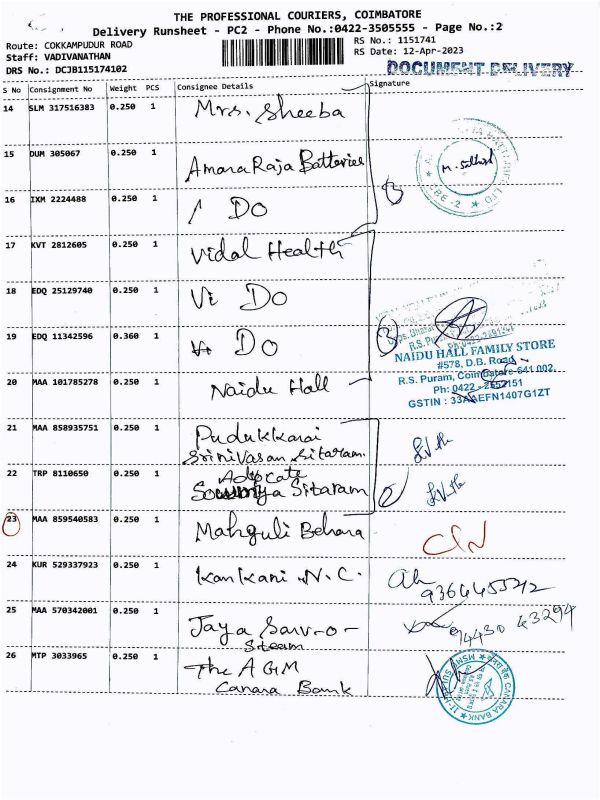 THE PROFESSIONAL COURIERS, COIMBATORE
Delivery Runsheet - PC2 - Phone No.:0422-3505555 - Page No.:2
Route: COKKAMPUDUR ROAD
RS No.: 1151741
Staff: VADIVANATHAN
RS Date: 12-Apr-2023
DRS No.: DCJB115174102
DOCUMENT DELIVERY
S No Consignment No Weight PCS Consignee Details Signature
14 SLM 317516383 0.250 1 Mrs. Sheeba
15 DUM 305067 0.250 1 Amara Raja Batteries
16 IXM 2224488 0.250 1 Do
17 KVT 2812605 0.250 1 Vidal Health
18 EDQ 25129740 0.250 1 Vi Do
19 EDQ 11342596 0.360 1 Do
NAIDU HALL FAMILY STORE
#578, D.B. Road
R.S. Puram, Coimbatore-641 002.
Ph: 0422 - 2552151
GSTIN : 33AAEFN1407G1ZT
20 MAA 101785278 0.250 1 Naidu Hall
21 MAA 858935751 0.250 1 Pudukkarai
Srinivasan Sitaram
22 TRP 8110650 0.250 1 Advocate
Sowmya Sitaram
23 MAA 859540583 0.250 1 Mahguli Behara
24 KUR 529337923 0.250 1 Kankani N.C.
25 MAA 570342001 0.250 1 Jaya Sarv-o-
Steam
94430 43294
26 MTP 3033965 0.250 1 The AGM
Canara Bank
CANARA BANK